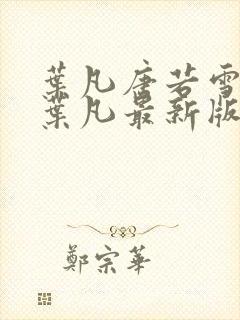 葉凡唐若雪
葉凡最新版
鄭宗華